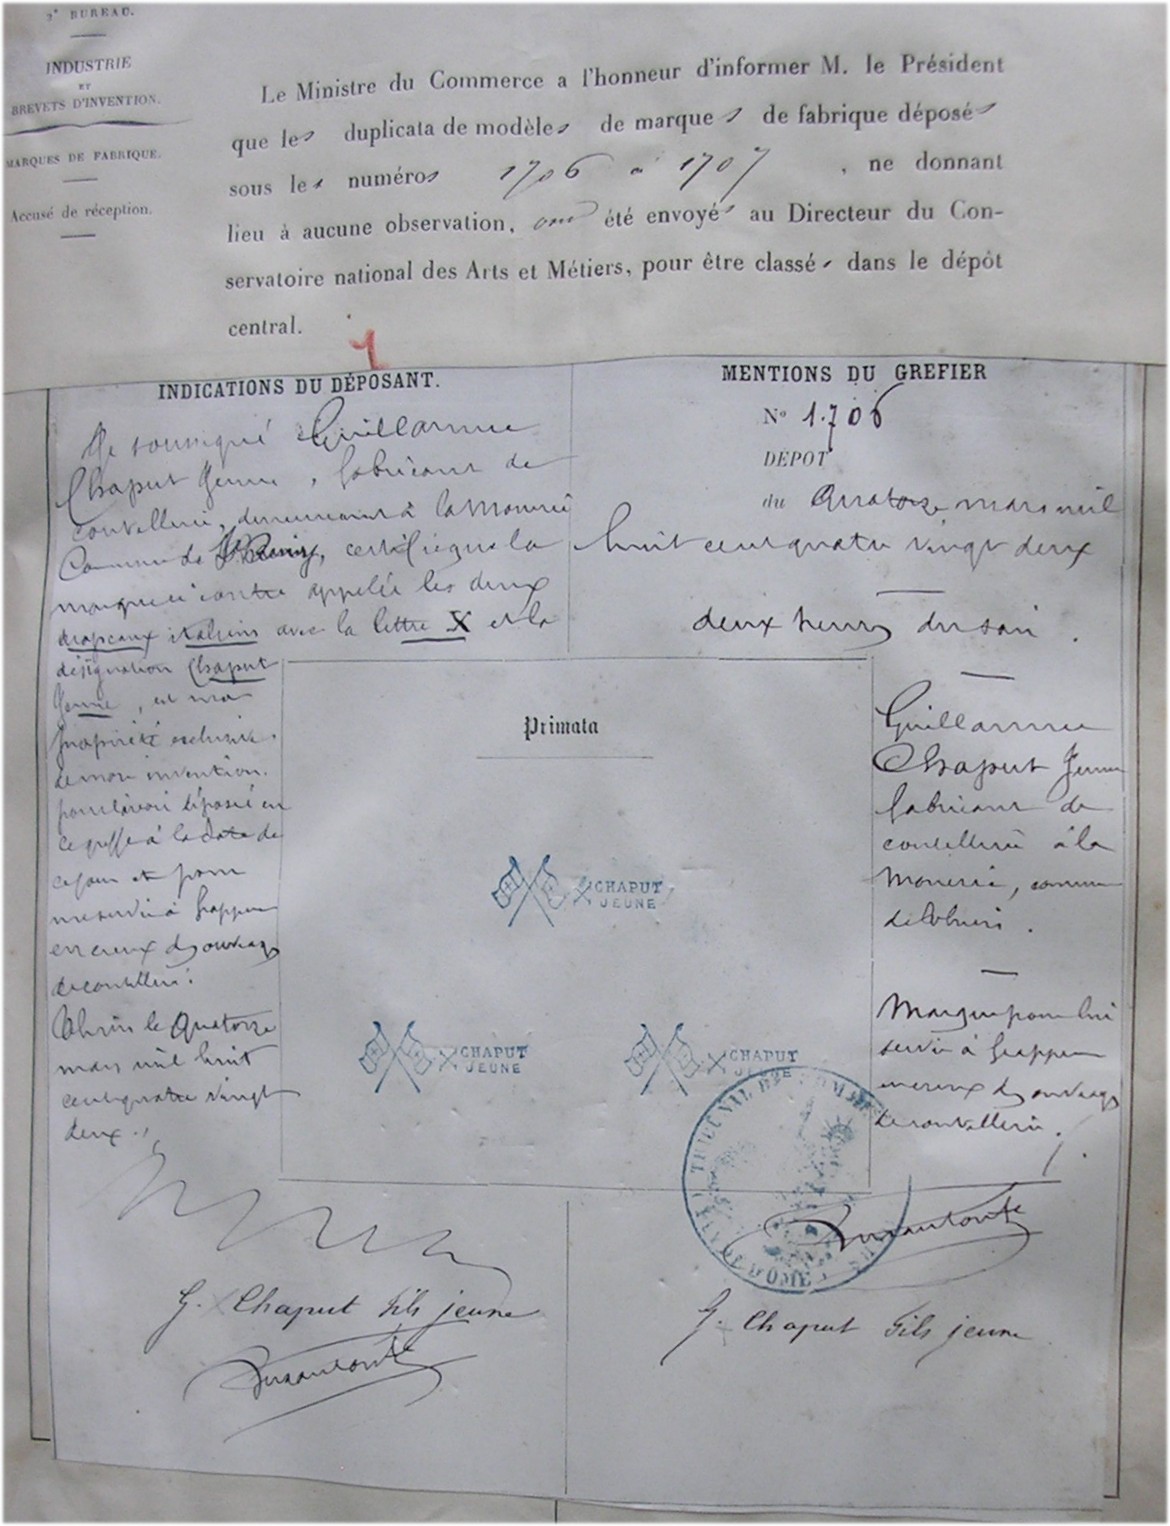 2e BUREAU.
INDUSTRIE
ET
BREVETS D'INVENTION.
MARQUES DE FABRIQUE.
Accusé de réception.
Le Ministre du Commerce a l'honneur d'informer M. le Président
que les duplicata de modèles de marques de fabrique déposés
sous les numéros 1706 à 1707, ne donnant
lieu à aucune observation, ont été envoyés au Directeur du Con-
servatoire national des Arts et Métiers, pour être classés dans le dépôt
central.
1
INDICATIONS DU DÉPOSANT.
Je soussigné Guillaume
Chaput Jeune, fabricant de
coutellerie, demeurant à la Monerie
Commune de, certifie que la
marque ci contre appelée les deux
drapeaux italiens avec la lettre X et la
désignation Chaput
Jeune, est ma
propriété exclusive.
de mon invention.
pour l'avoir déposé en
ce greffe à la date de
ce jour et pour
me servir à frapper
en creux des ouvrages
de coutellerie.
Thiers le Quatorze
mars mil huit
cent quatre vingt
deux.
G. Chaput fils jeune
MENTIONS DU GREFIER
No 1706
DÉPOT
du Quatorze mars mil
huit cent quatre vingt deux
deux heures du soir.
Primata
CHAPUT
JEUNE
CHAPUT
JEUNE
CHAPUT
JEUNE
Guillaume
Chaput Jeune
fabricant de
coutellerie à la
Monerie, commune
de.
Marque pour lui
servir à frapper
en creux des ouvrages
de coutellerie.
TRIBUNAL DE COMMERCE
PUY DE DOME
G. Chaput fils jeune